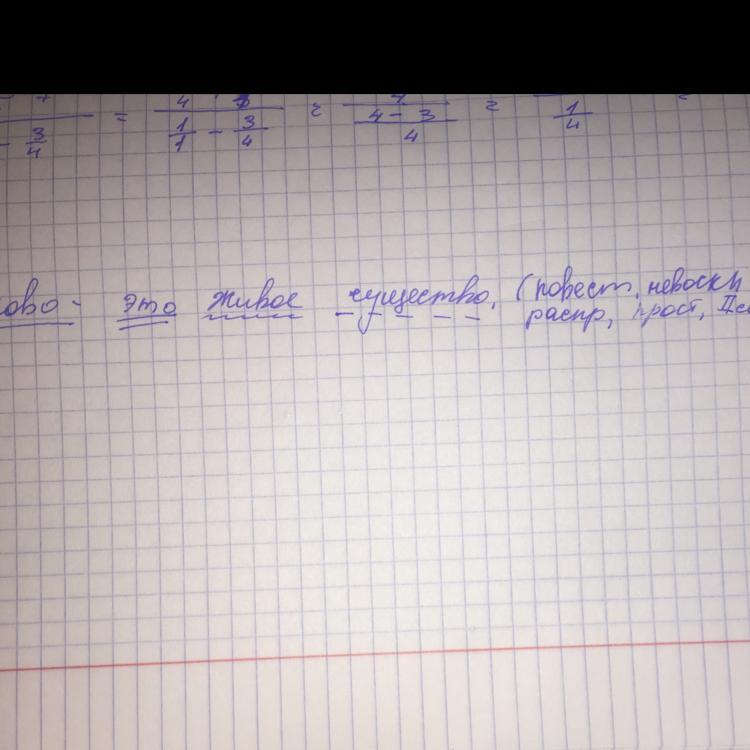 3/4 = 1/1 - 3/4 = 4 - 3/4 = 1/4 =
ово - это живое существо. (повест, невоскл
распр, прост, II со